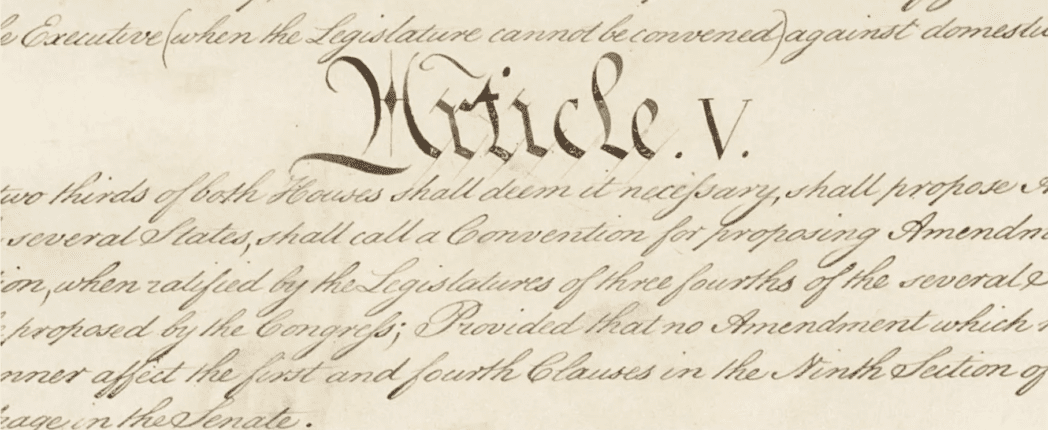 Executive (when the Legislature cannot be convened) against domestic
Article. V.
two thirds of both Houses shall deem it necessary, shall propose
several States, shall call a Convention for proposing
when ratified by the Legislatures of three fourths of the several
proposed by the Congress; Provided that no Amendment which
affect the first and fourth Clauses in the Ninth Section of
in the Senate.